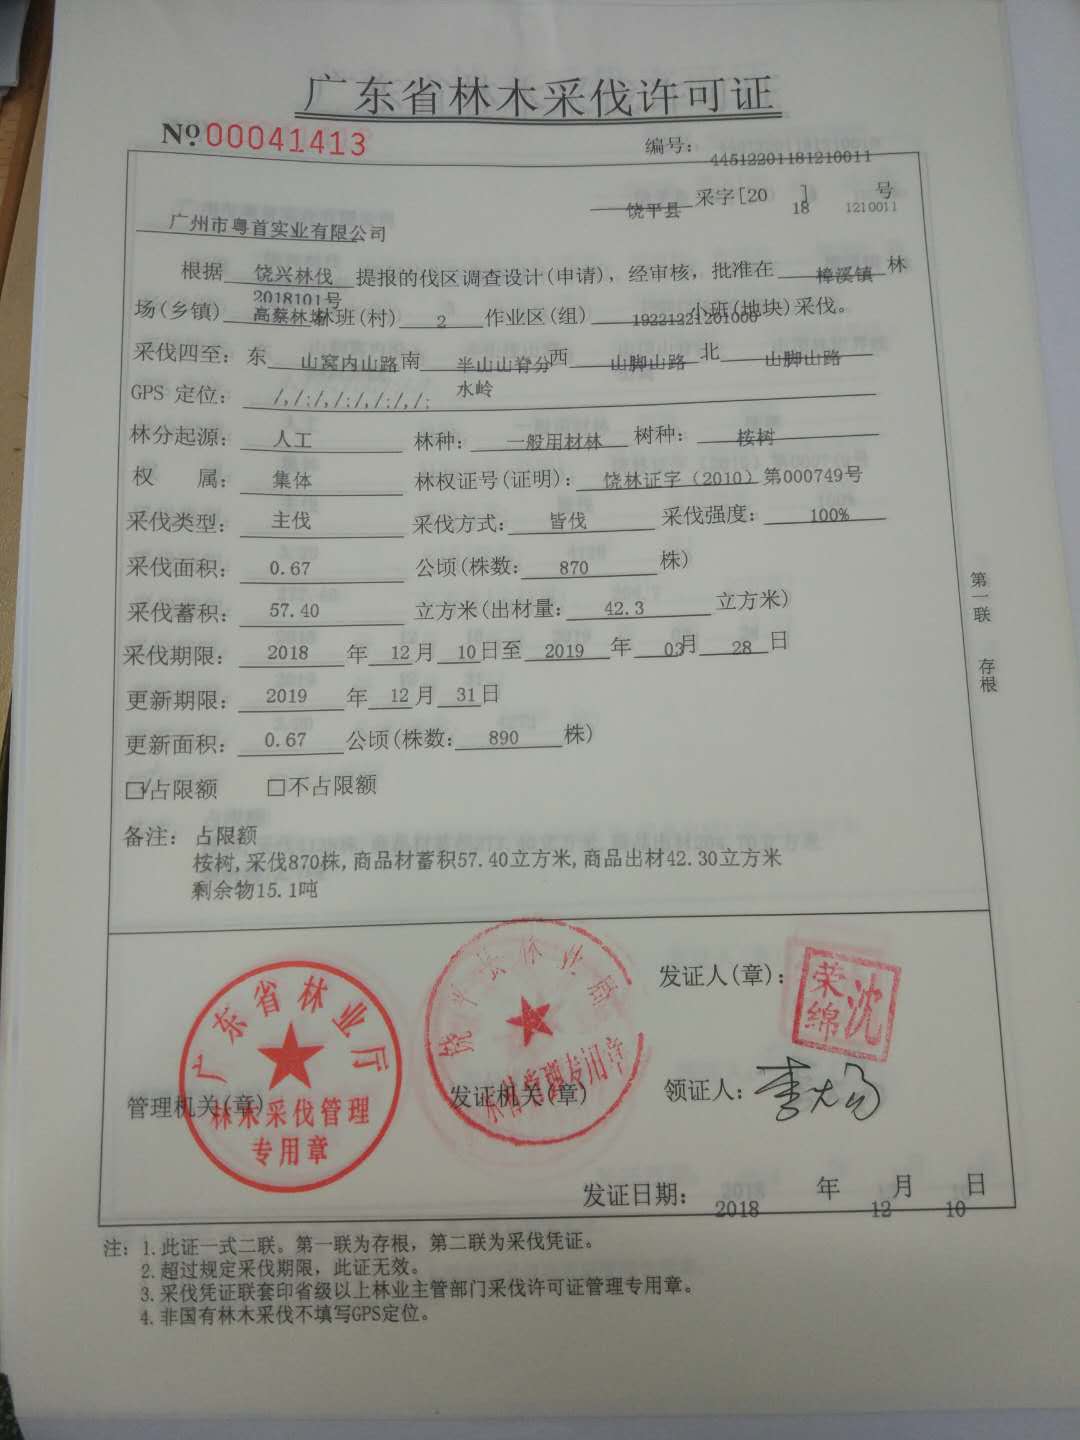 广东省林木采伐许可证
№ 00041413
编号: 44512201181210011
饶平县 采字[2018] 1210011 号
广州市粤首实业有限公司
根据 饶兴林伐2018101号 提报的伐区调查设计(申请), 经审核, 批准在 樟溪镇 林
场(乡镇) 高蔡林场 林班(村) 2 作业区(组) 19221221201000 小班(地块)采伐。
采伐四至: 东 山窝内山路 南 半山山脊分水岭 西 山脚山路 北 山脚山路
GPS 定位: /,/;/,/;/,/;/,/;
林分起源: 人工 林种: 一般用材林 树种: 桉树
权 属: 集体 林权证号(证明): 饶林证字（2010）第000749号
采伐类型: 主伐 采伐方式: 皆伐 采伐强度: 100%
采伐面积: 0.67 公顷(株数: 870 株)
采伐蓄积: 57.40 立方米(出材量: 42.3 立方米)
采伐期限: 2018 年 12 月 10 日至 2019 年 03 月 28 日
更新期限: 2019 年 12 月 31 日
更新面积: 0.67 公顷(株数: 890 株)
☑占限额 □不占限额
备注: 占限额
桉树,采伐870株,商品材蓄积57.40立方米,商品出材42.30立方米
剩余物15.1吨
第一联 存根
管理机关(章)
广东省林业厅
林木采伐管理
专用章
发证机关(章)
发证人(章):
沈荣绵
领证人:
发证日期: 2018 年 12 月 10 日
注: 1.此证一式二联。第一联为存根，第二联为采伐凭证。
2.超过规定采伐期限，此证无效。
3.采伐凭证联套印省级以上林业主管部门采伐许可证管理专用章。
4.非国有林木采伐不填写GPS定位。